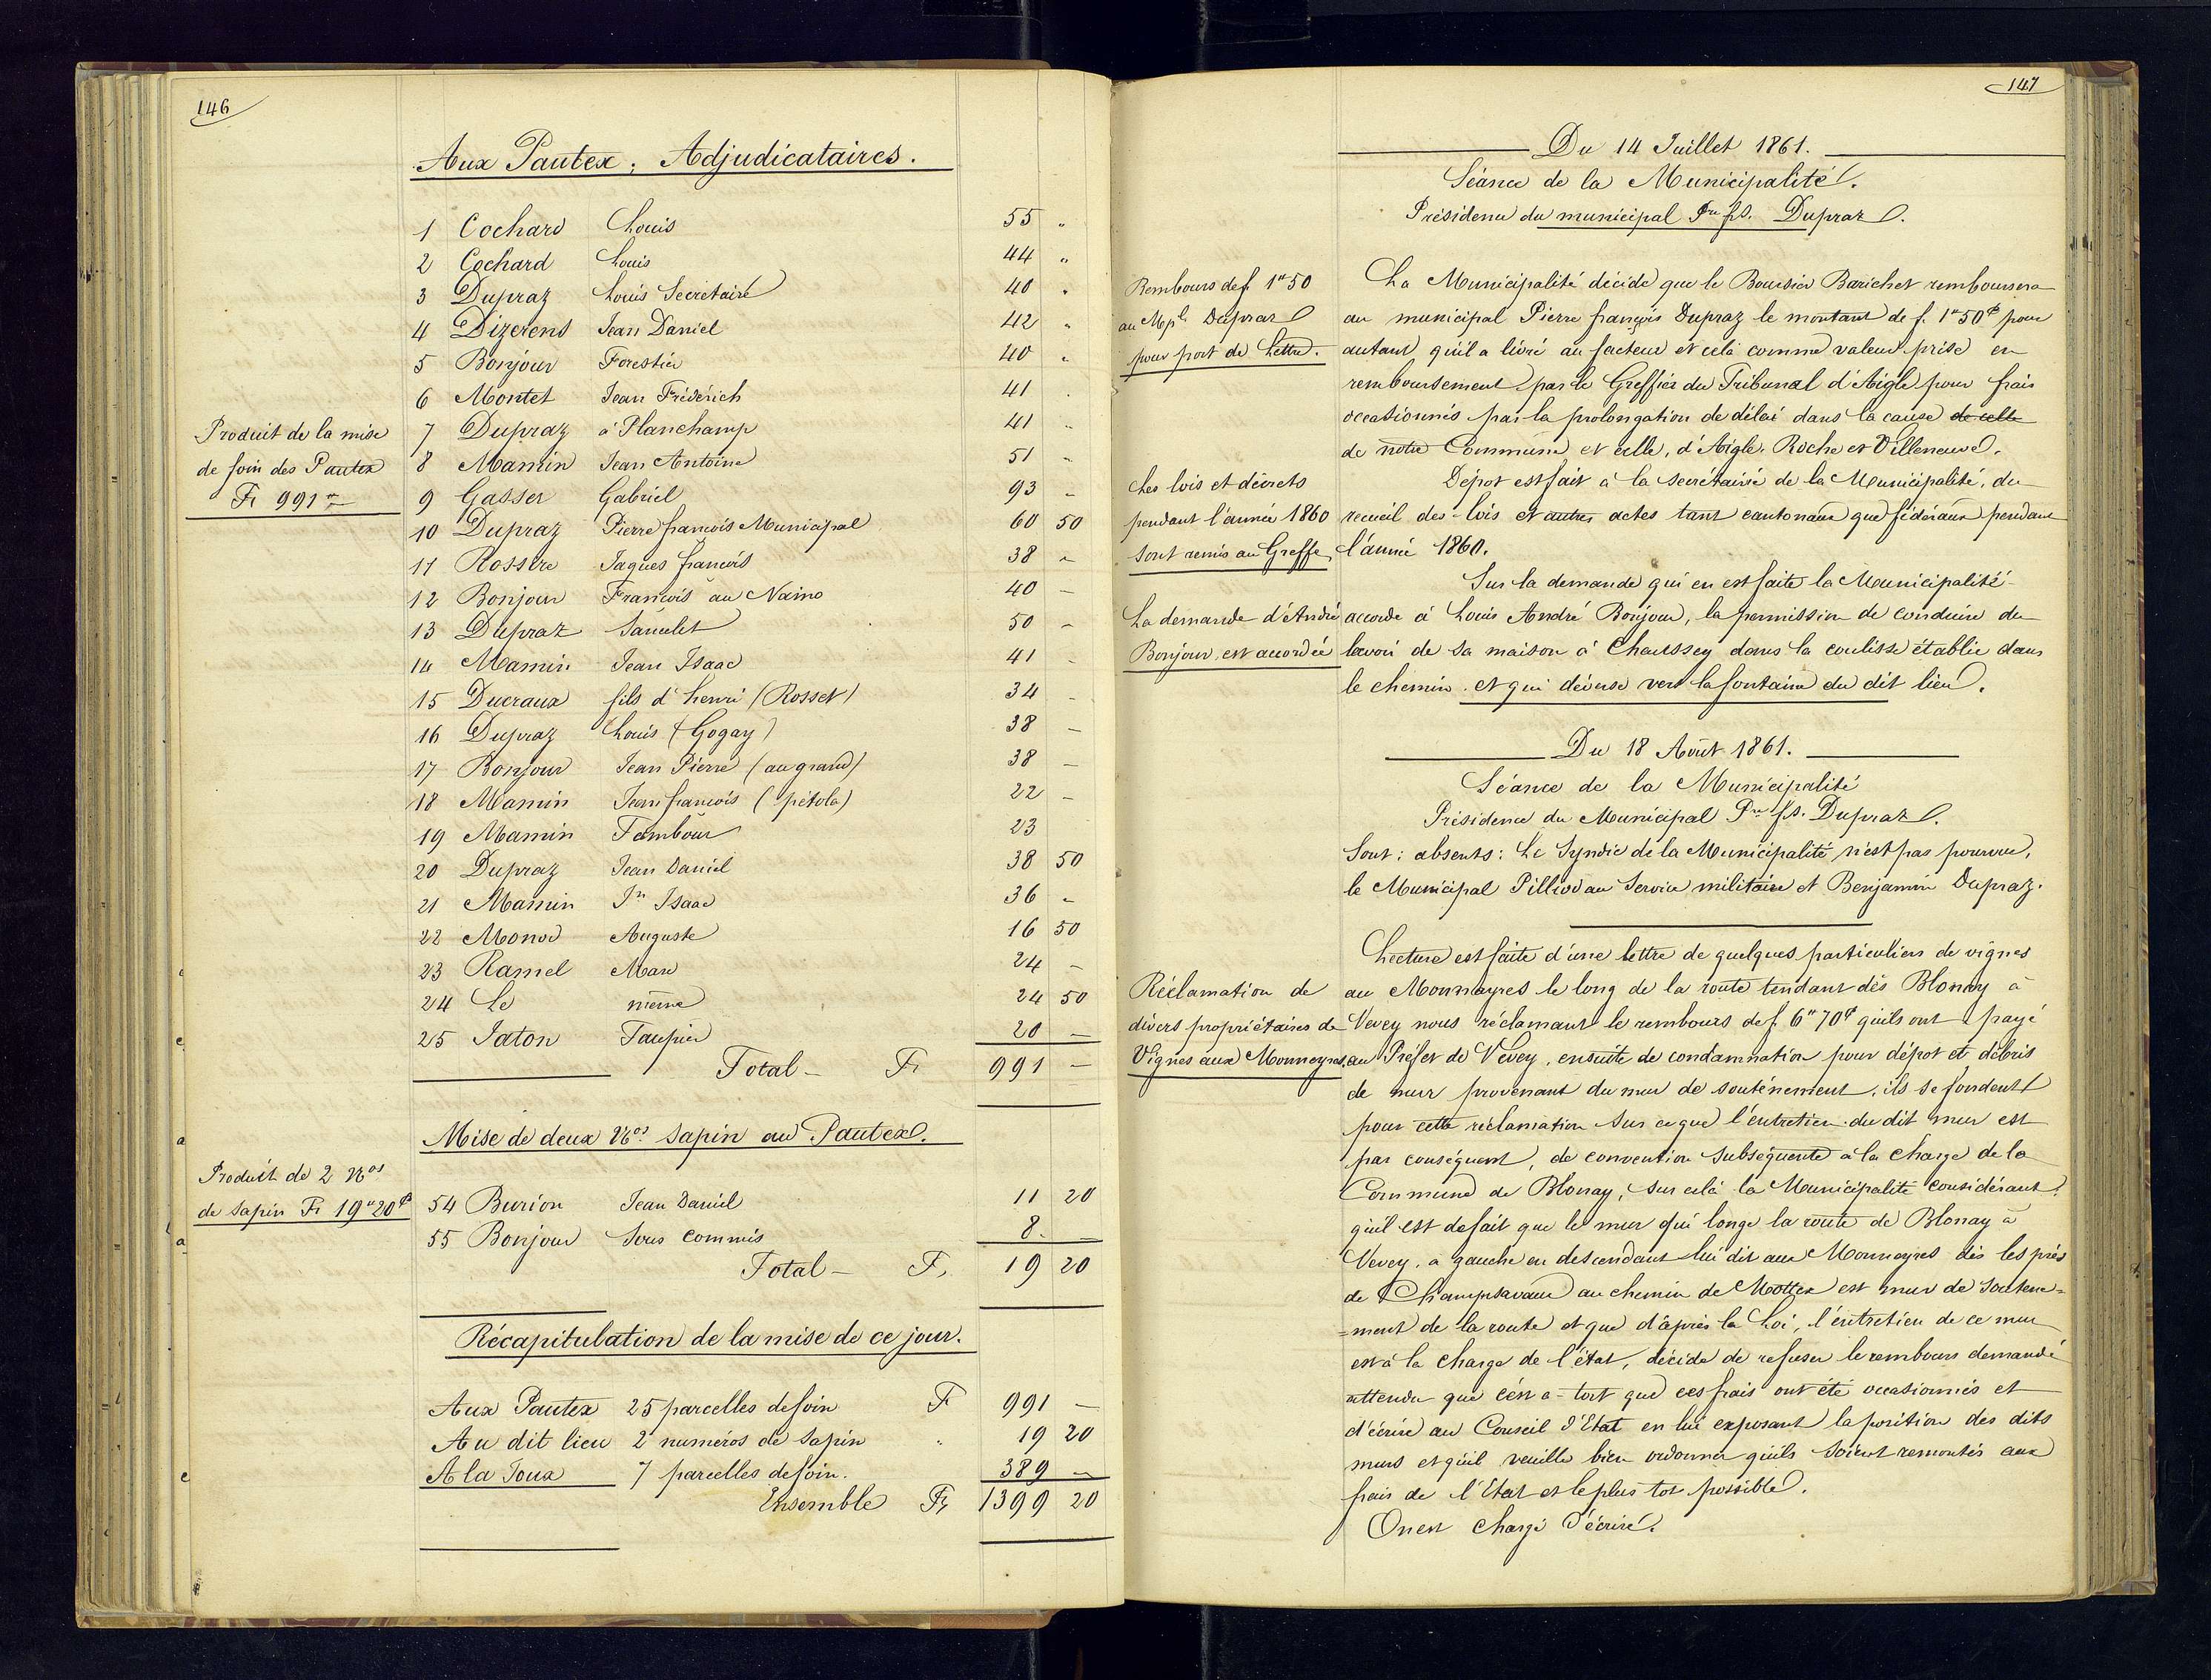 146
Aux Pautex; Adjudicataires.
1 Cochard Louis 55 "
2 Cochard Louis 44 "
3 Dupraz Louis Secrétaire 40 "
4 Dizerens Jean Daniel 42 "
5 Bonjour Forestier 40 "
6 Montet Jean Fréderich 41 "
Produit de la mise
de foin des Pautex
Fr 991 " —
7 Dupraz à Planchamp 41 "
8 Mamin Jean Antoine 51 "
9 Gasser Gabriel 93 —
10 Dupraz Pierre françois Municipal 60 50
11 Rossire Jaques françois 38 "
12 Bonjour François au Naino 40 —
13 Dupraz Samelet 50 —
14 Mamin Jean Isaac 41 —
15 Ducraux fils d'henri (Rosset) 34 —
16 Dupraz Louis (Gogay) 38 —
17 Bonjour Jean Pierre (au grand) 38 —
18 Mamin Jean françois (pétola) 22 —
19 Mamin Tambour 23
20 Dupraz Jean Daniel 38 50
21 Mamin Jn Isaac 36 "
22 Monod Auguste 16 50
23 Ramel Marc 24 —
24 Le même 24 50
25 Jaton Taupier 20 —
Total — Fr 991 —
Mise de deux Nos sapin au Pautex.
Produit de 2 Nos
de sapin Fr 19"20
54 Burion Jean Daniel 11 20
55 Bonjour Sous commis 8. —
Total — Fr 19 20
Récapitulation de la mise de ce jour.
Aux Pautex 25 parcelles de foin Fr 991 —
Au dit lieu 2 numéros de sapin " 19 20
A la Joux 7 parcelles de foin. 389 —
Ensemble Fr 1399 20
147
Du 14 Juillet 1861.
Séance de la Municipalité.
Présidence du municipal Pre fs. Dupraz.
Rembours de f. 1"50
au Mpl Dupraz
pour port de Lettre.
La Municipalité décide que le Boursier Barichet remboursera
au municipal Pierre françois Dupraz le montant de f. 1"50 pour
autant qu'il a livré au facteur et celà comme valeur prise en
remboursement par le Greffier du Tribunal d'Aigle pour frais
occasionnés par la prolongation de délai dans la cause de celle
de notre Commune et celle, d'Aigle, Roche et Villeneuve.
Les lois et décrets
pendant l'année 1860
sont remis au Greffe,
Dépot est fait à la secrétairie de la Municipalité, du
recueil des lois et autres actes tant cantonaux que fédéraux pendant
l'année 1860.
La demande d'André
Bonjour, est accordée
Sur la demande qui en est faite la Municipalité
accorde à Louis André Bonjour, la permission de conduire du
lavoir de sa maison à Chaussey dans la coulisse établie dans
le chemin et qui dévuse vers la fontaine du dit lieu.
Du 18 Août 1861.
Séance de la Municipalité
Présidence du Municipal Pre fs. Dupraz.
Sont: absents: Le Syndic de la Municipalité n'est pas pourvue,
le Municipal Pilliod au service militaire et Benjamin Dupraz.
Réclamation de
divers propriétaires de
Vignes aux Monneyres.
Lecture est faite d'une lettre de quelques particuliers de vignes
au Monnayres le long de la route tendant dès Blonay à
Vevey nous réclamant le rembours de f. 6"70 quils ont payé
au Préfet de Vevey, ensuite de condamnation pour dépot et débris
de mur provenant du mur de souténement, ils se fondent
pour cette réclamation sur ce que l'entretien du dit mur est
par conséquent, de convention subséquente à la charge de la
Commune de Blonay, sur celà la Municipalité considérant
qu'il est de fait que le mur qui longe la route de Blonay à
Vevey, a gauche en descendant lui dit aux Monneyres dès les prés
de Champsavaux au chemin de Mottex est mur de soutene=
=ment de la route et que d'après la Loi, l'entretien de ce mur
est à la charge de l'état, décide de refuser le rembours demandé
attendu que c'est a tort que ces frais ont été occasionnés et
d'écrire au Conseil d'Etat en lui exposant la position des dits
murs et qu'il veuille bien ordonner quils soient remontés aux
frais de l'Etat et le plus tot possible.
On est chargé d'écrire.